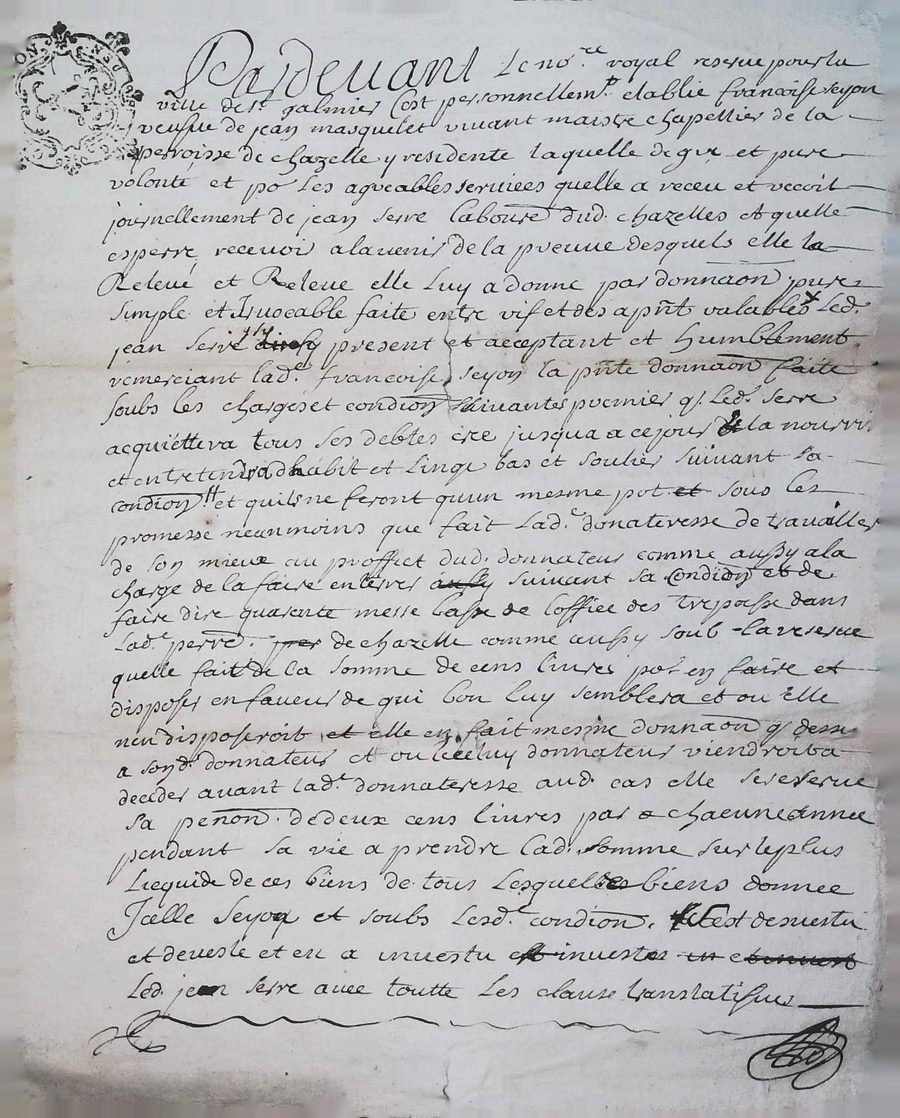 Pardevant Le no.re royal reservé pour la
ville de St galmier C'est personnellemt. establie francoise seyon
veufve de jean masquelet vivant maistre chapellier de la
perroisse de chazelle y residente laquelle de gré et pure
volonté et por. Les agreables services quelle a receu et recoit
journellement de jean serre laboure. dud. chazelles et quelle
esperre recevoir alavenir de la preuve desquels elle la
Relevé et Releve elle Luy a donné par donnaon pure
simple et Irrvocable faite entre vif et des aprnt valables x Led.
jean serre present et acceptant et humblement
remerciant lad.e francoise seyon la prnte donnaon faite
soubs les charges et condion suivantes premier q. Led. serre
acquiettera tous ses debtes cree jusqua a ce jour la nourrir
et entretenira dhabit et Linge bas et soulier suivant sa
condion et quils ne feront quun mesme pot et sous les
promesse neanmoins que fait Lad.e donateresse de travailler
de son mieux au proffict dud. donnateur comme aussy a la
charge de la faire enterrer aussy suivant sa condion et de
faire dire quarente messe basse de l'office des Trepasse dans
Lad.e perre. de chazelle comme aussy soub la reserve
quelle fait de la somme de cens livres por. en faire et
disposer en faveur de qui bon Luy semblera et ou elle
nen disposeroit et elle en fait mesme donnaon
a sond. donnateur et ou Icceluy donnateur viendroit a
decider avant lad.e donnateresse aud. cas elle se reserve
sa penon. de deux cens livres par chacune annee
pendant sa vie a prendre Lad. somme sur le plus
Liequide de ces biens de tous Lesquelles biens donnee
Icelle Seyon et soubs Lesd.e condion. C'est desvestu
et deveste et en a investu invester
Led. jean serre avec toutte Les clause translatifues